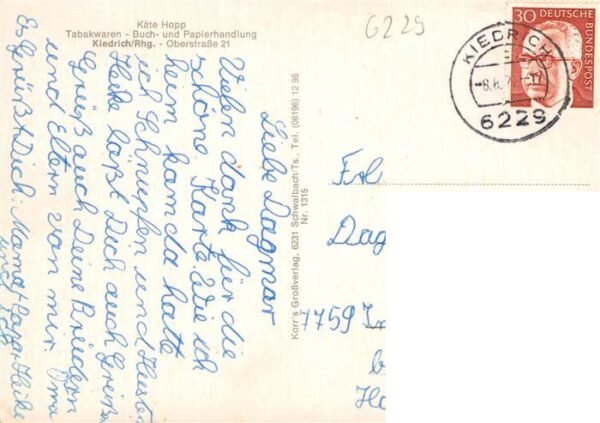 Käte Hopp
Tabakwaren - Buch- und Papierhandlung
Kiedrich/Rhg. - Oberstraße 21
6229
30 DEUTSCHE BUNDESPOST
KIEDRICH
6229
Liebe Dagmar
Vielen dank für die
schöne Karte. Wie ich
heim kam da hatte
ich Schnupfen und Husten
Heike läßt Dich auch Grüßen
Grüß auch Deine Brüdern
und Eltern von mir. Oma
Es Grüßt Dich: Mama + Papa + Heike
und
Korr's Großverlag, 6231 Schwalbach/Ts., Tel. (06196) 12 96
Nr. 1315
Frl
Dag
1759
b
Ha